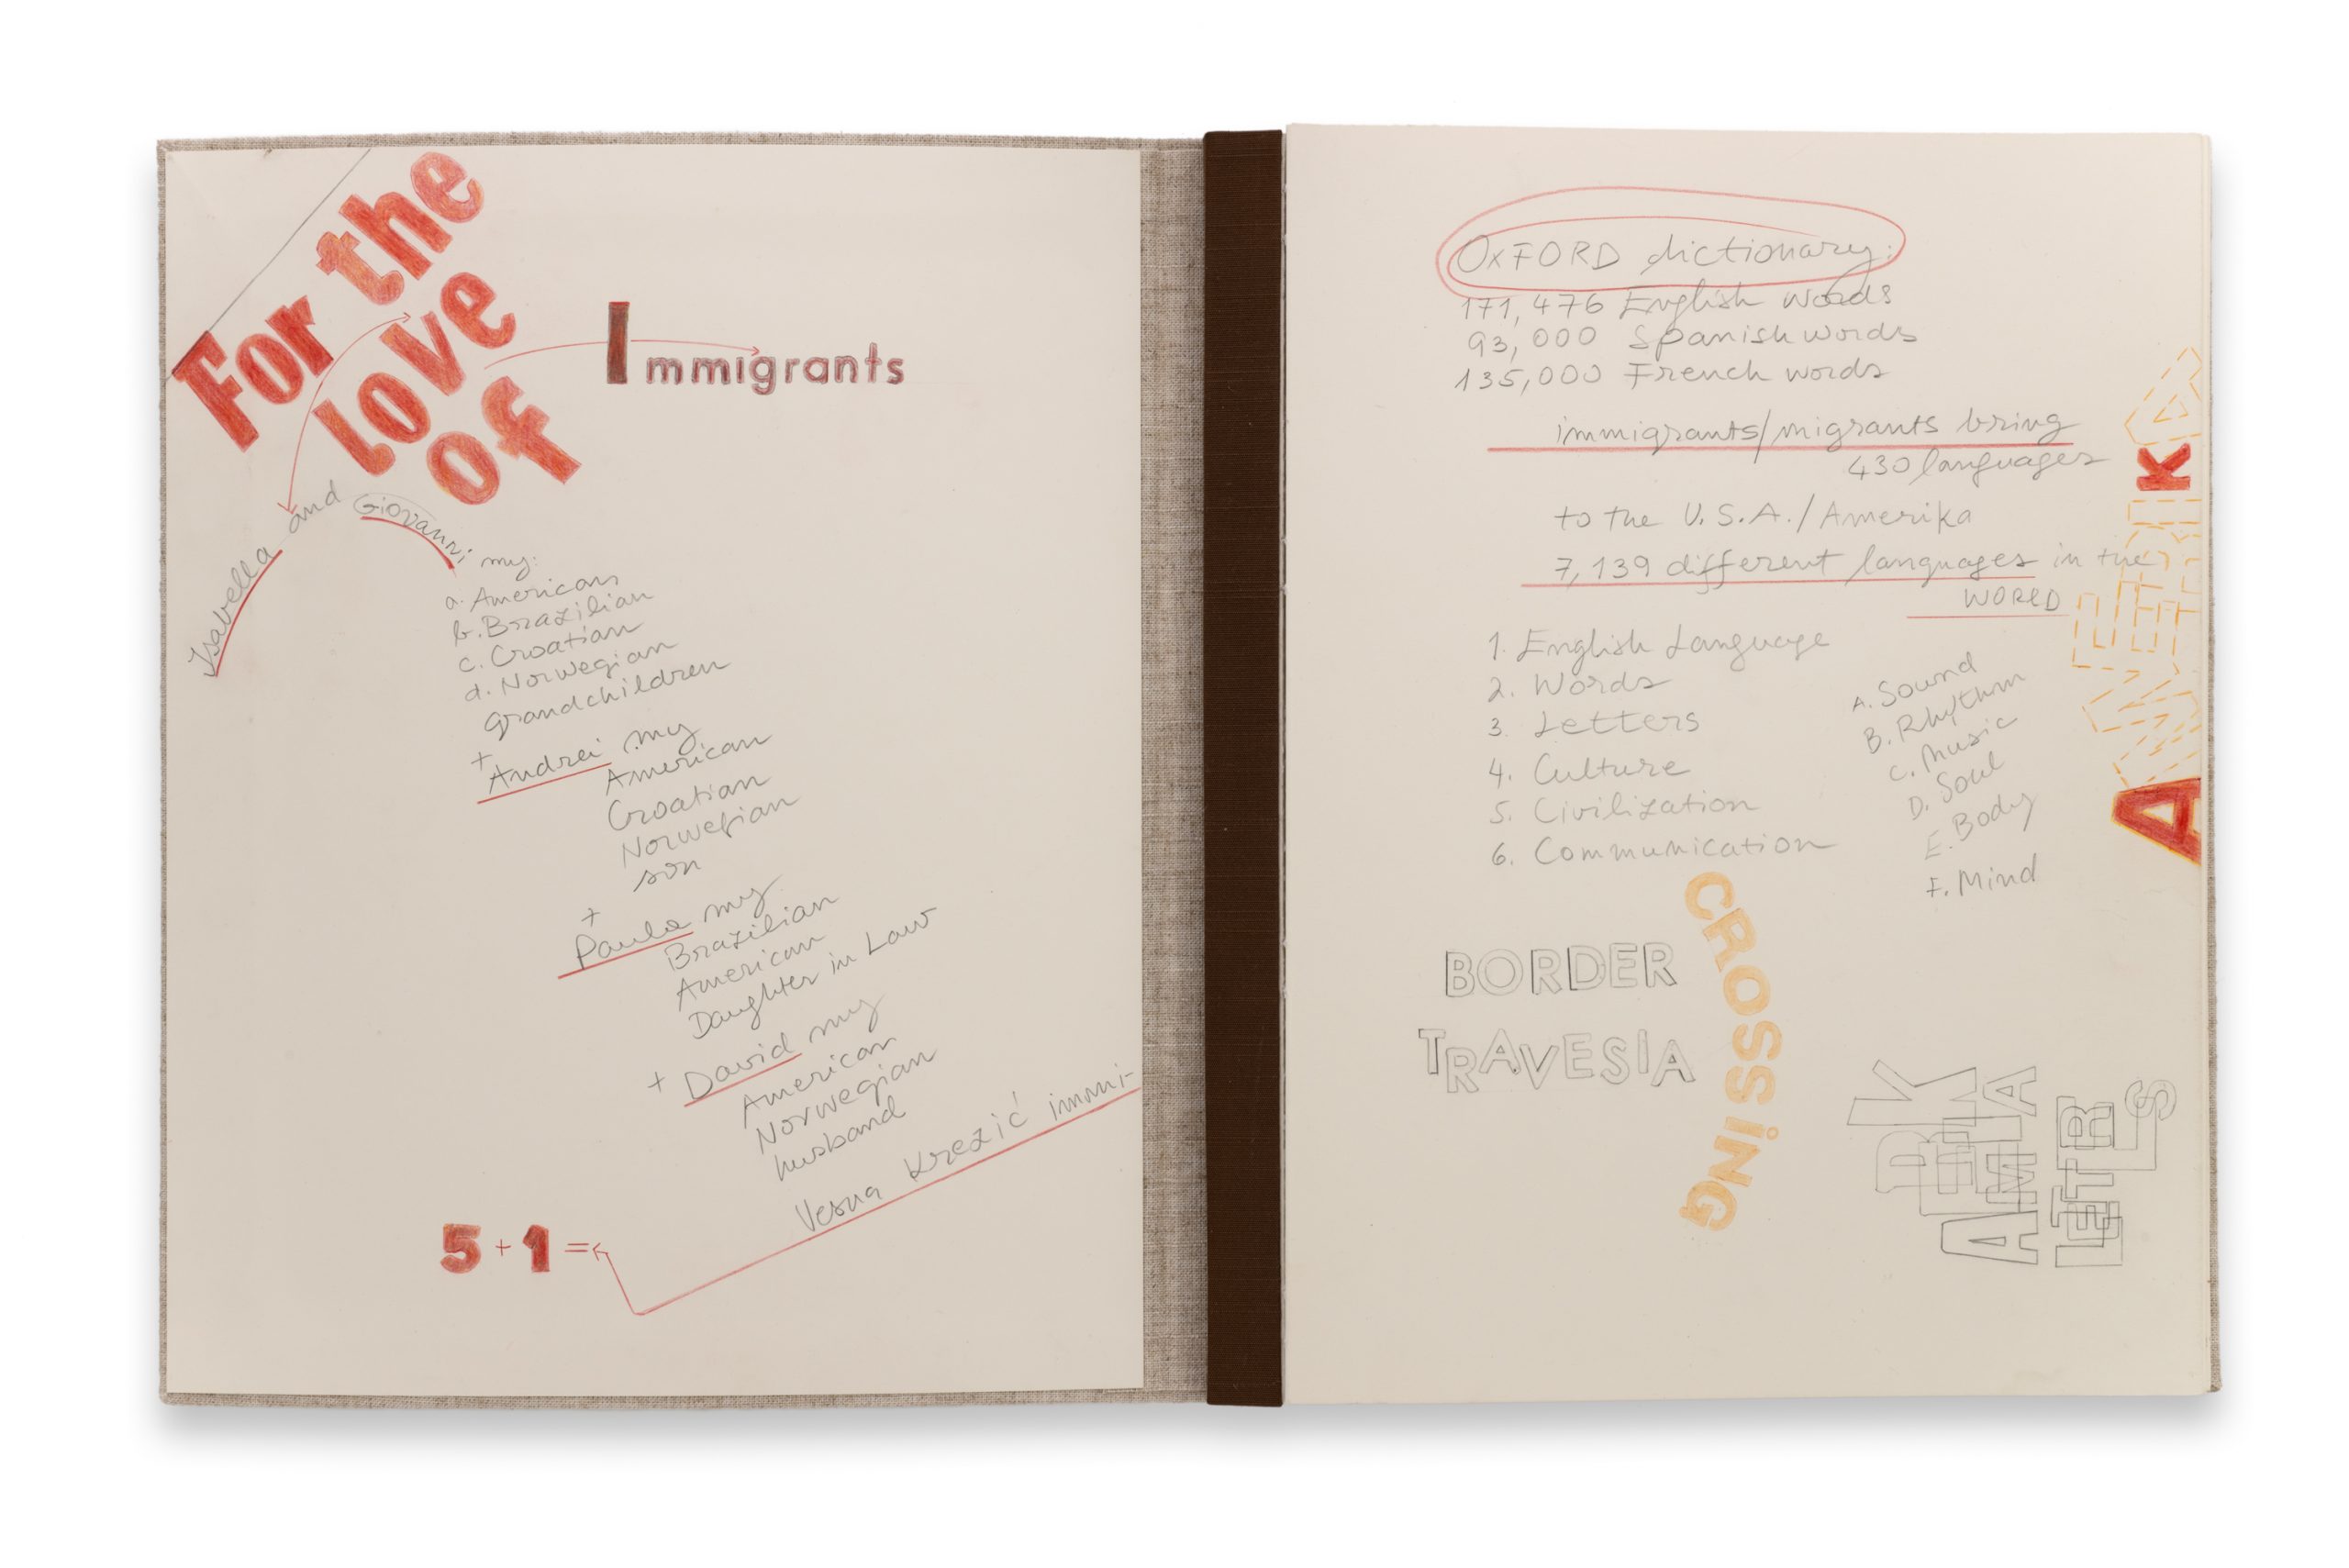 For the
love
of
Immigrants
Isabella and Giovanni my:
a. American
b. Brazilian
c. Croatian
d. Norwegian
grandchildren
+
Andrei my
American
Croatian
Norwegian
son
+
Paula my
Brazilian
American
Daughter in Law
+ David my
American
Norwegian
husband
Vesna Krezić immi-
5 + 1 =
OXFORD dictionary:
171,476 English words
93,000 Spanish words
135,000 French words
immigrants/migrants bring
430 languages
to the U.S.A./Amerika
7,139 different languages in the
WORLD
1. English Language
2. Words
3. Letters
4. Culture
5. Civilization
6. Communication
A. Sound
B. Rhythm
C. Music
D. Soul
E. Body
F. Mind
BORDER
CROSSING
TRAVESIA
AMERIKA